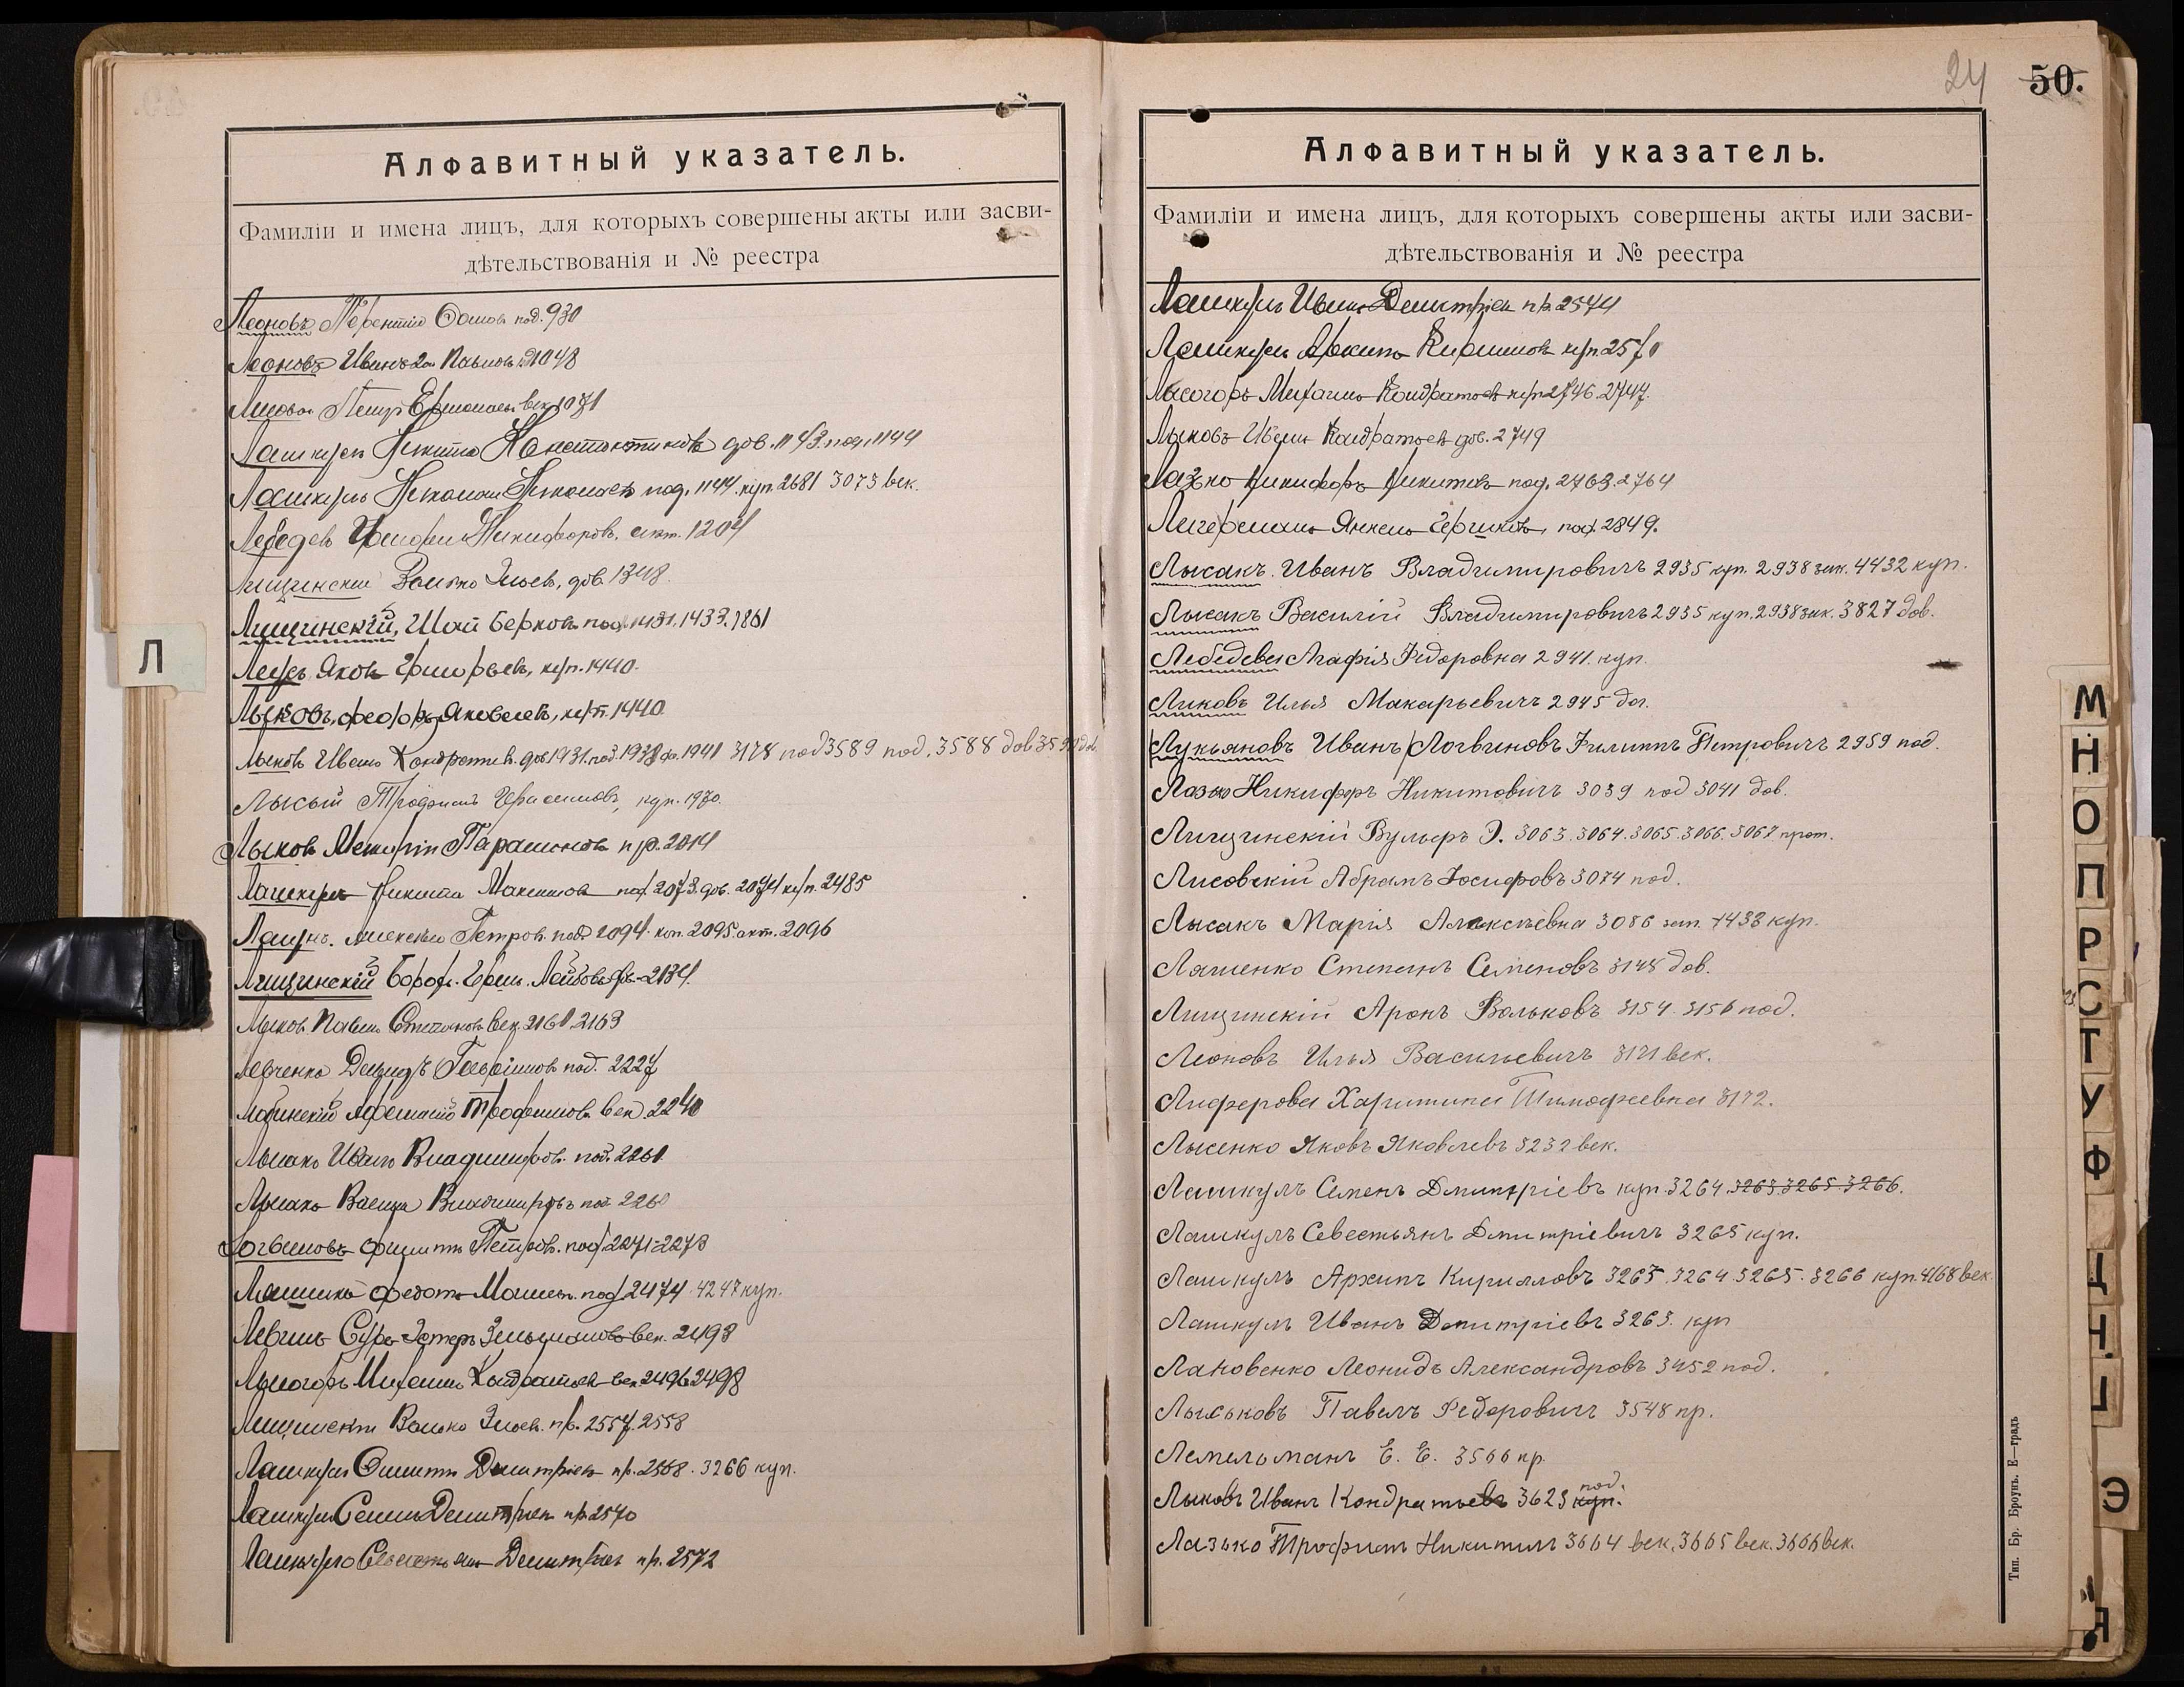 Алфавитный указатель.
Фамиліи и имена лицъ, для которыхъ совершены акты или засви-
дѣтельствованія и № реестра
Леоновъ Терентій под. 930
Леоновъ Иванъ 1048
Петр век. 1071
Никита дов. 1143. под. 1144
под. 1144. куп. 2681 3073 век.
Лебедев Никифоровъ, 1204
Лищинскій дов. 1348.
Лищинскій, Шая Берковъ 1433. 1861
Яковъ Григорьевъ, куп. 1440.
Лыковъ, Яковлевъ, куп. 1440
Лыковъ Иванъ Кондратьев. дов 1931. под. 1941 3178 под 3589 под. 3588 дов
Лысый Трофимъ Герасимовъ, куп. 1970.
Лыков Парамонов пр. 2014
Лашкулъ Никита Максимов под 2073. дов. 2074 куп. 2485
Петров. под 2094. коп. 2095. 2096
Лищинскій 2134.
Лыков Павелъ Степанов век. 2161. 2163
Левченко Давидъ под. 2227
Трофимовъ век. 2240
Лысакъ Иванъ Владимиров. под. 2261
Лысакъ Владимировъ под 2260
Логвиновъ Филиппъ Петров. под 2271-2273
Федотъ под 2474 4247 куп.
век. 2493
Лысогоръ Михаилъ Кондратьев век. 2496 2498
Лищинскій Волько пр. 2557. 2558
Лашкулъ Дмитріев пр. 2568. 3266 куп.
Лашкулъ Семенъ Дмитріев пр. 2570
Лашкулъ Севастьянъ Дмитріев пр. 2572
Л
24 50.
Алфавитный указатель.
Фамиліи и имена лицъ, для которыхъ совершены акты или засви-
дѣтельствованія и № реестра
Лашкулъ Иванъ Дмитріев пр. 2574
Лашкулъ Архипъ Кирилловъ куп.
Лысогоръ Михаилъ Кондратьев куп 2746. 2747.
Лыковъ Иванъ Кондратьев дов. 2749
Лазько Никифоръ Никитинъ под. 2763. 2764
Янкель Гершковъ, под. 2849.
Лысакъ. Иванъ Владимировичъ 2935 куп. 2938 зак. 4432 куп.
Лысакъ Василій Владимировичъ 2935 куп. 2938 зак. 3827 дов.
Лебедева Агафія Федоровна 2941. куп.
Ликовъ Илья Макарьевичъ 2945 дог.
Лукьяновъ Иванъ Логвиновъ Филиппъ Петровичъ 2959 под.
Лазько Никифоръ Никитовичъ 3039 под 3041 дов.
Лищинскій Вульфъ Э. 3063. 3064. 3065. 3066. 3067 прот.
Лисовскій Абрамъ Іосифовъ 3074 под.
Лысакъ Марія Алексѣевна 3086 4433 куп.
Ляшенко Степанъ Семеновъ 3148 дов.
Лищинскій Аронъ Вольковъ 3154. 3156 под.
Леоновъ Илья Васильевичъ 3171 век.
Лиферова Харитина Тимофеевна 3172.
Лысенко Яковъ Яковлевъ 3232 век.
Лашкулъ Семенъ Дмитріевъ куп. 3264. 3263. 3265. 3266.
Лашкулъ Севестьянъ Дмитріевичъ 3265 куп.
Лашкулъ Архипъ Кирилловъ 3263. 3264. 3265. 3266 куп. 4168 век.
Лашкулъ Иванъ Дмитріевъ 3263. куп
Лановенко Леонидъ Александровъ 3452 под.
Лыськовъ Павелъ Федоровичъ 3548 пр.
Лемельманъ Е. Е. 3566 пр.
под.
Лыковъ Иванъ Кондратьевъ 3623 куп.
Лазько Трофимъ Никитичъ 3664 век. 3665 век. 3666 век.
Тип. Бр. Броунъ. Е—градъ
М
Н
О
П
Р
С
Т
У
Ф
Ц
Ч
Э
Я